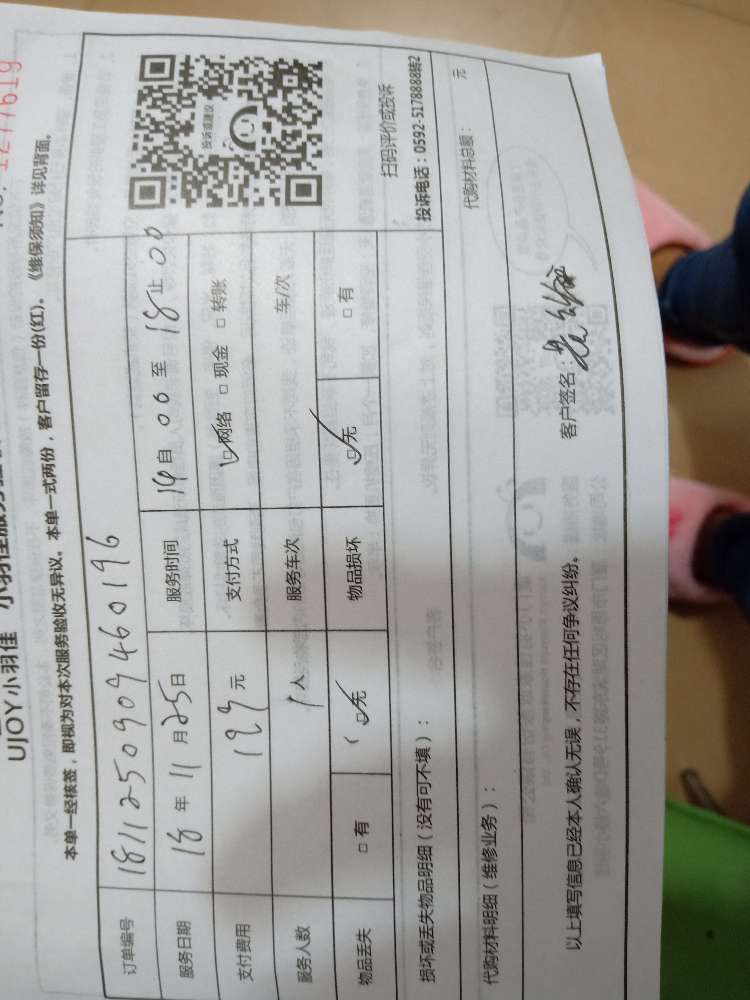 No. 1277619
UJOY小羽佳
本单一经核签，即视为对本次服务验收无异议。本单一式两份，客户留存一份(红)。《维保须知》详见背面。
订单编号 181125090946019 6
服务日期 18 年 11 月 25 日 服务时间 14 自 00 至 18 止 00
支付费用 元 支付方式 ☑ 网络 □ 现金 □ 转账
服务人数 1 人 服务车次 车/次
物品丢失 □ 有 ☑ 无 物品损坏 ☑ 无 □ 有
投诉或建议
扫码评价或投诉
投诉电话：0592-5178888转2
损坏或丢失物品明细（没有可不填）：
代购材料明细（维修业务）： 代购材料总额： 元
以上填写信息已经本人确认无误，不存在任何争议纠纷。 客户签名：